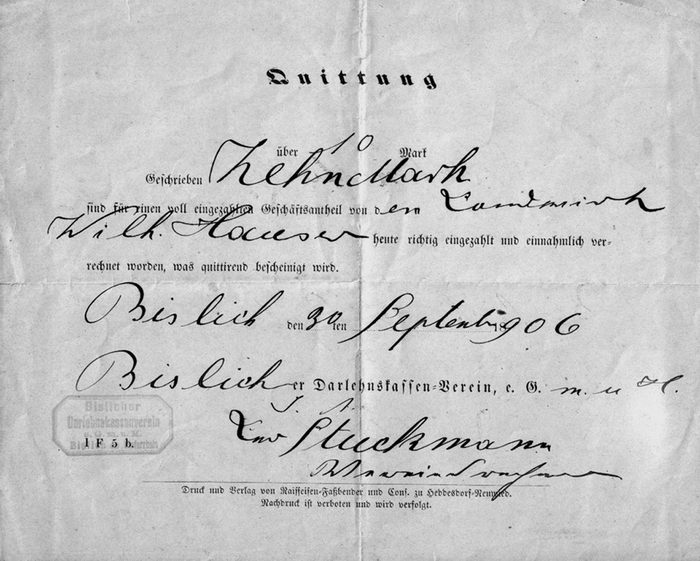 Quittung
über 10 Mark
Geschrieben Zehn Mark
sind für einen voll eingezahlten Geschäftsantheil von dem Landwirth
Wilh. Hauser heute richtig eingezahlt und einnahmlich ver-
rechnet worden, was quittirend bescheinigt wird.
Bislich den 30ten September 1906
Bislicher Darlehnskassen-Verein, e. G. m. u. H.
Stuckmann
Bislicher
Darlehnskassenverein
e. G. m. u. H.
Bislich
1 F 5 b.
Druck und Verlag von Raiffeisen-Faßbender und Cons. zu Heddesdorf-Neuwied.
Nachdruck ist verboten und wird verfolgt.